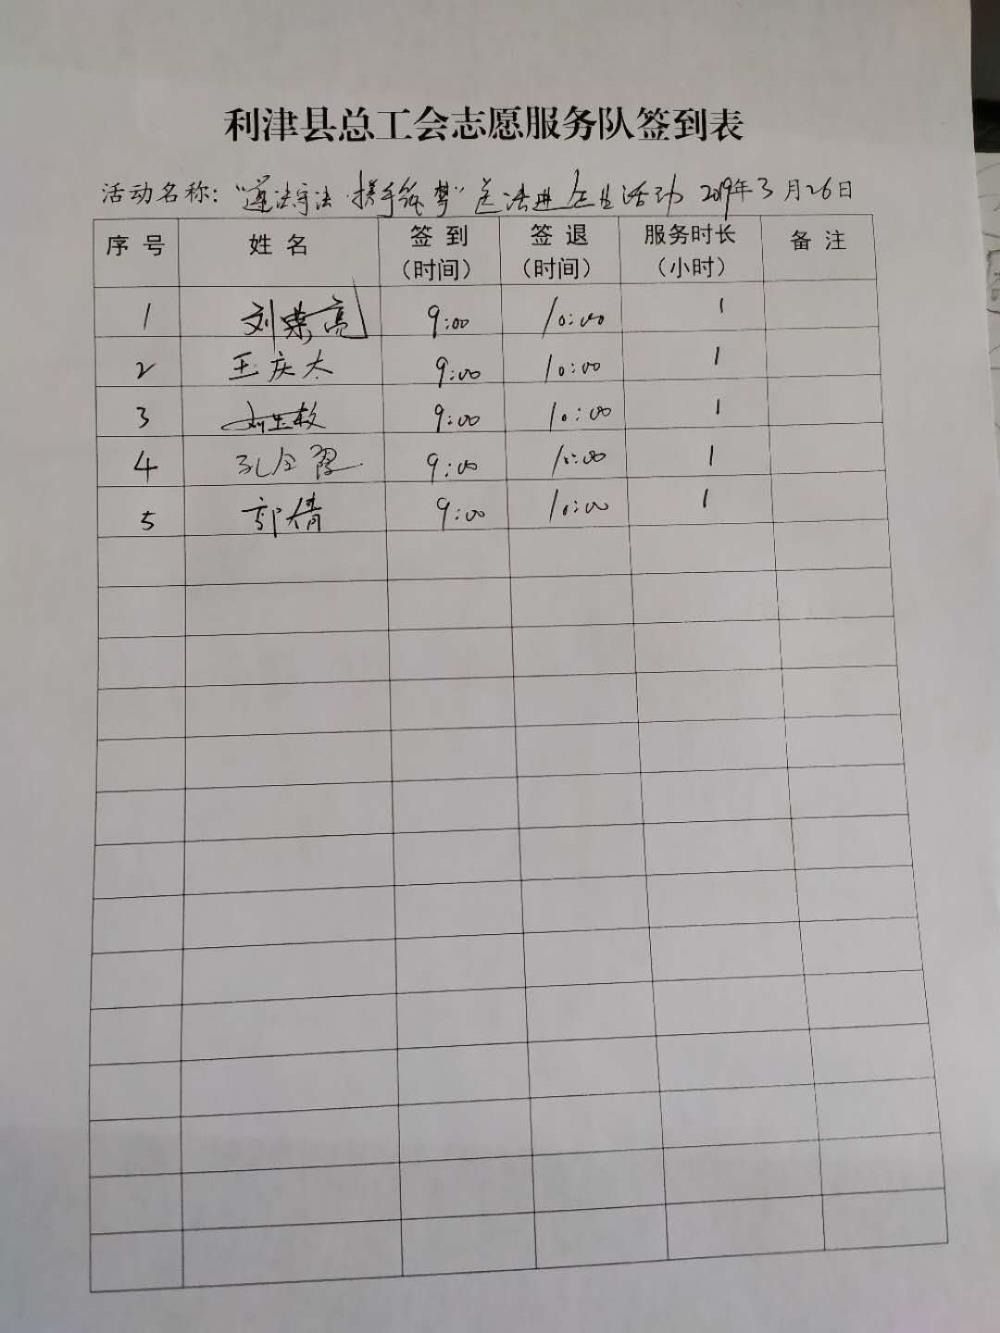 利津县总工会志愿服务队签到表
活动名称："遵法守法·携手筑梦"送法进企业活动 2019年3月26日
序号 姓名 签到（时间） 签退（时间） 服务时长（小时） 备注
1 刘荣亮 9:00 10:00 1
2 王庆太 9:00 10:00 1
3 9:00 10:00 1
4 孔令 9:00 10:00 1
5 郭倩 9:00 10:00 1